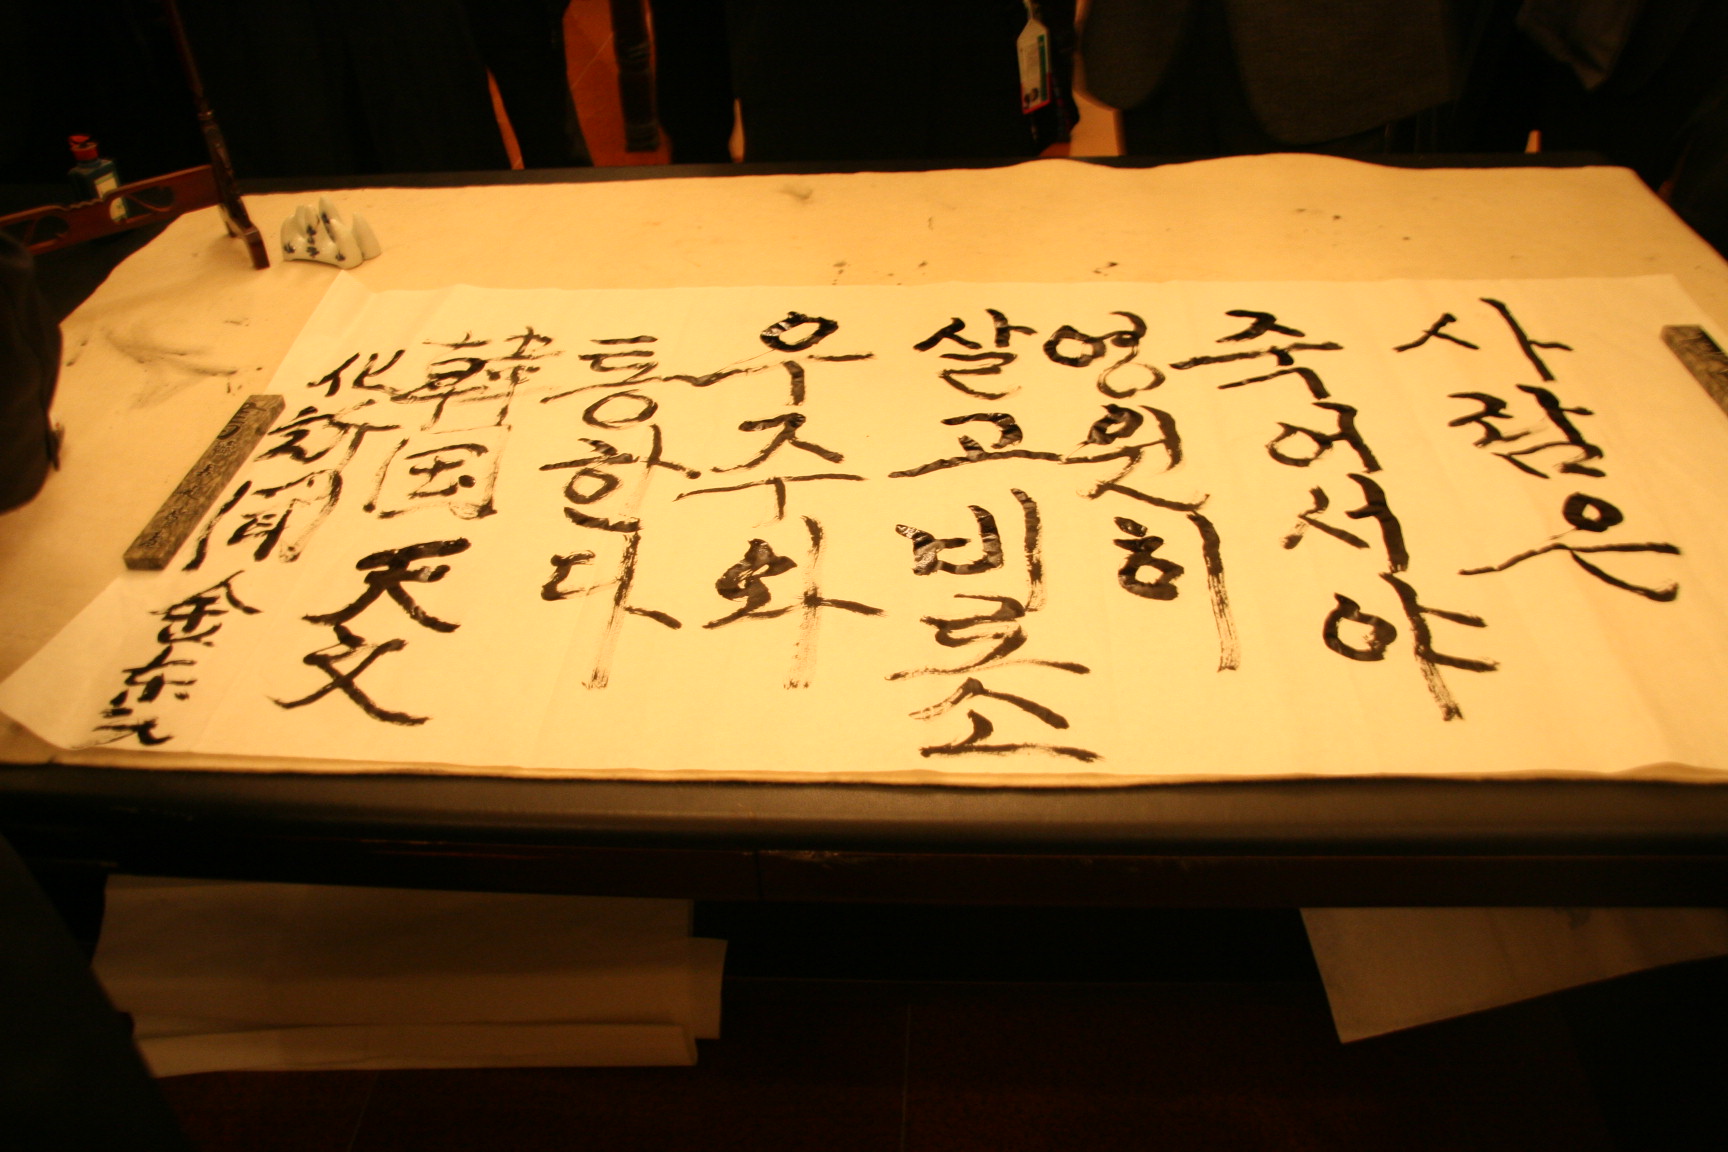 사람은
죽어서야
영원히
살고 비로소
우주와
통한다
韓国 天文
化新聞 金